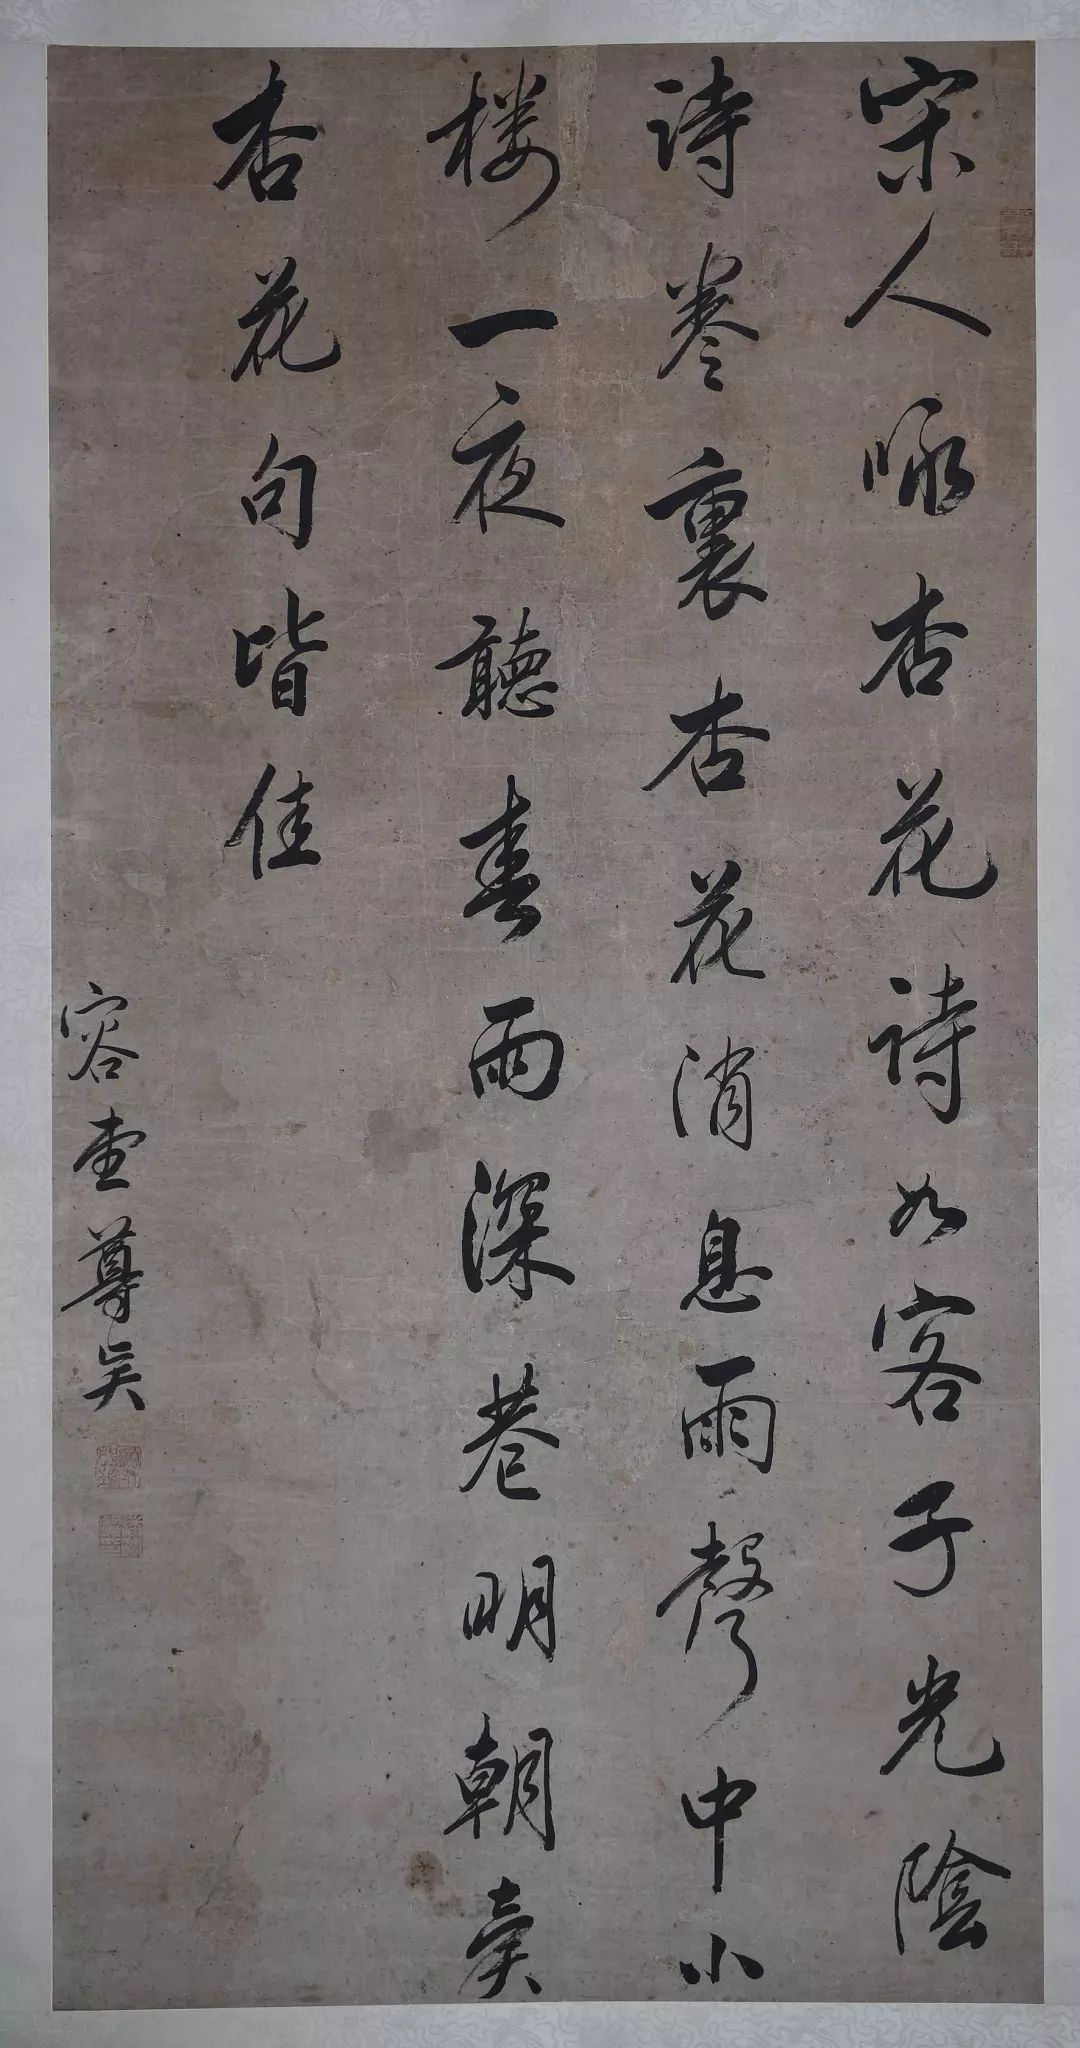 宋人咏杏花诗如客子光陰
诗卷裏杏花消息雨聲中小
楼一夜聽春雨深巷明朝賣
杏花句皆佳
容壺尊矣